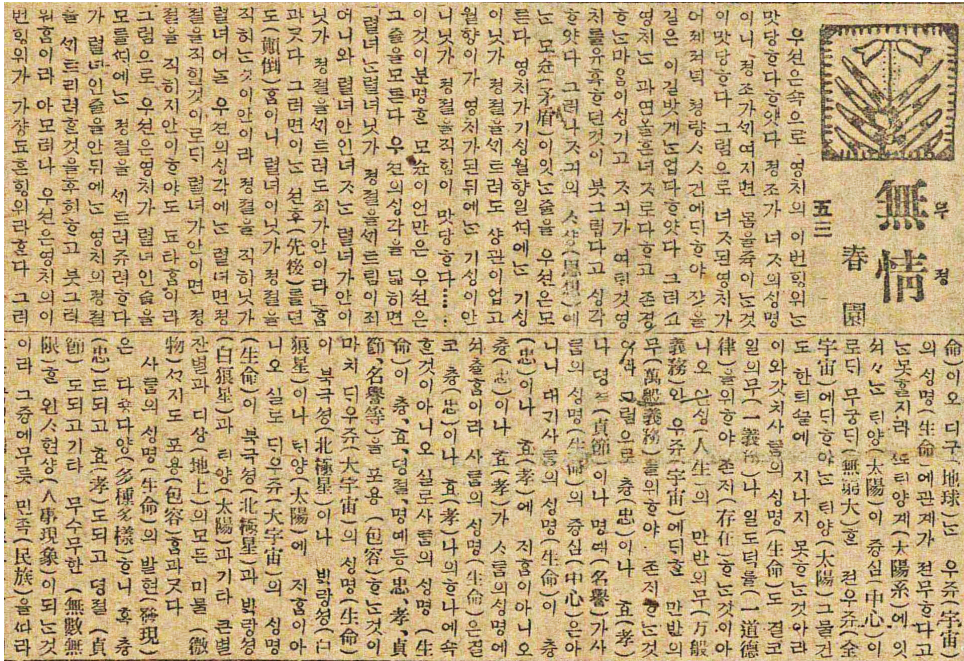 無情
무정
五三
春園
우션은속으로 영치의 이번힝위는
맛당ᄒᆞ다ᄒᆞ얏다 졍조가 녀ᄌᆞ의싱명
이니 졍조가ᄭᅢ여지면 몸을쥭이는것
이맛당ᄒᆞ다 그럼으로 녀ᄌᆞ된영치가
어제져녁 쳥량ᄉᆞᄉᆞ건에ᄃᆡᄒᆞ야 잡을
길은 이길밧게는업다ᄒᆞ얏다 그ᄅᆡ셔
영치는 과연을흔녀ᄌᆞ로다ᄒᆞ고 존경
ᄒᆞ는마음이싱기고 ᄌᆞ긔가 여러것영
치를유혹ᄒᆞ던것이 붓그럽다고 싱각
ᄒᆞ얏다 그러나ᄌᆞ긔의 ᄉᆞ샹(思想)에
는 모슌(矛盾)이잇는줄을 우션은모
른다 영치가기싱월향일ᄯᅢ에는 기싱
이닛가 졍졀을ᄭᅢ트려도 샹관이업고
월향이가 영치가된뒤에는 기싱이안
니닛가 졍졀을직힘이 맛당ᄒᆞ다……
이것이분명ᄒᆞᆫ 모슌이언만은 우션은
그줄을모른다 우션의싱각을 넓히면
「렬녀는렬녀닛가 졍졀을ᄭᅢ트림이죄
어니와 렬녀안인녀ᄌᆞ는 렬녀가안이
닛가 졍졀을ᄭᅢ트려도죄가안이라」홈
과ᄀᆞᆺ다 그러면이는 션후(先後)를뎐
도(顚倒)홈이니 렬녀이닛가 졍졀을
직히는것이안이라 졍졀을 직히닛가
렬녀어늘 우션의싱각에는 렬녀면졍
졀을직힐것이로되 렬녀가안이면 졍
졀을 직히지안이ᄒᆞ야도 됴타홈이라
그럼으로 우션은영치가 렬녀인줄을
모를ᄯᅢ에는 졍졀을 ᄭᅢ트려쥬려ᄒᆞ다
가 렬녀인줄을안뒤에는 영치의졍졀
을 ᄭᅢ트리려ᄒᆞᆯ것을후회ᄒᆞ고 붓그러
워홈이라 아모려나 우션은영치의이
번힝위가 가쟝됴흔힝위라ᄒᆞᆫ다 그러
命이오 디구(地球)는 우쥬(宇宙)
의싱명(生命)에관계가 젼무ᄒᆞ다고
는못ᄒᆞᆯ지라 ᄯᅩ틱양계(太陽系)에잇
셔々는 틱양(太陽)이 즁심(中心)이
로되 무궁딕(無窮大)ᄒᆞᆫ 젼우쥬(全
宇宙)에딕ᄒᆞ야는 틱양(太陽)그물건
도 한틔ᄭᅳᆯ에 지나지 못ᄒᆞ는것이라
이와갓치사ᄅᆞᆷ의싱명(生命)도 결코
일의무(一義務)나 일도덕률(一道德
律)을위ᄒᆞ야 존지(存在)ᄒᆞ는것이아
니오 인싱(人生)의 만반의무(万般
義務)와 우쥬(宇宙)에딕ᄒᆞᆫ 만반의
무(萬般義務)를위ᄒᆞ야 존지ᄒᆞ는것
이라 그럼으로 츙(忠)이나 효(孝)
나 뎡졀(貞節)이나 명예(名譽)가사
ᄅᆞᆷ의싱명(生命)의 즁심(中心)은아
니니 대기사ᄅᆞᆷ의싱명(生命)이 츙
(忠)이나 효(孝)에 저홈이아니오
츙(忠)이나 효(孝)가 사ᄅᆞᆷ의싱명에
셔츌홈이라 사ᄅᆞᆷ의싱명(生命)은결
코 츙(忠)이나 효(孝)나의ᄒᆞ나에속
ᄒᆞᆫ것이아니오 실로사ᄅᆞᆷ의싱명(生
命)이 츙、효、뎡졀、명예등(忠、孝、貞
節、名譽等)을 포용(包容)ᄒᆞ는것이
마치 딕우쥬(大宇宙)의싱명(生命)
이 북극셩(北極星)이나 빅랑셩(白
狼星)이나 틱양(太陽)에 저홈이아
니오 실로 딕우쥬(大宇宙)의싱명
(生命)이 북극셩(北極星)과 빅랑셩
(白狼星)과 틱양(太陽)과기타 큰별
잔별과 디상(地上)의모든 미물(微
物)ᄭᅡ지도 포용(包容)홈과ᄀᆞᆺ다
사ᄅᆞᆷ의싱명(生命)의발현(發現)
은 다죵다양(多種多樣)ᄒᆞ니 혹 츙
(忠)도되고 효(孝)도되고 뎡졀(貞
節)도되고기타 무수무한(無數無
限)ᄒᆞᆫ 인ᄉᆞ현샹(人事現象)이되는것
이라 그즁에무릇 민족(民族)을따라